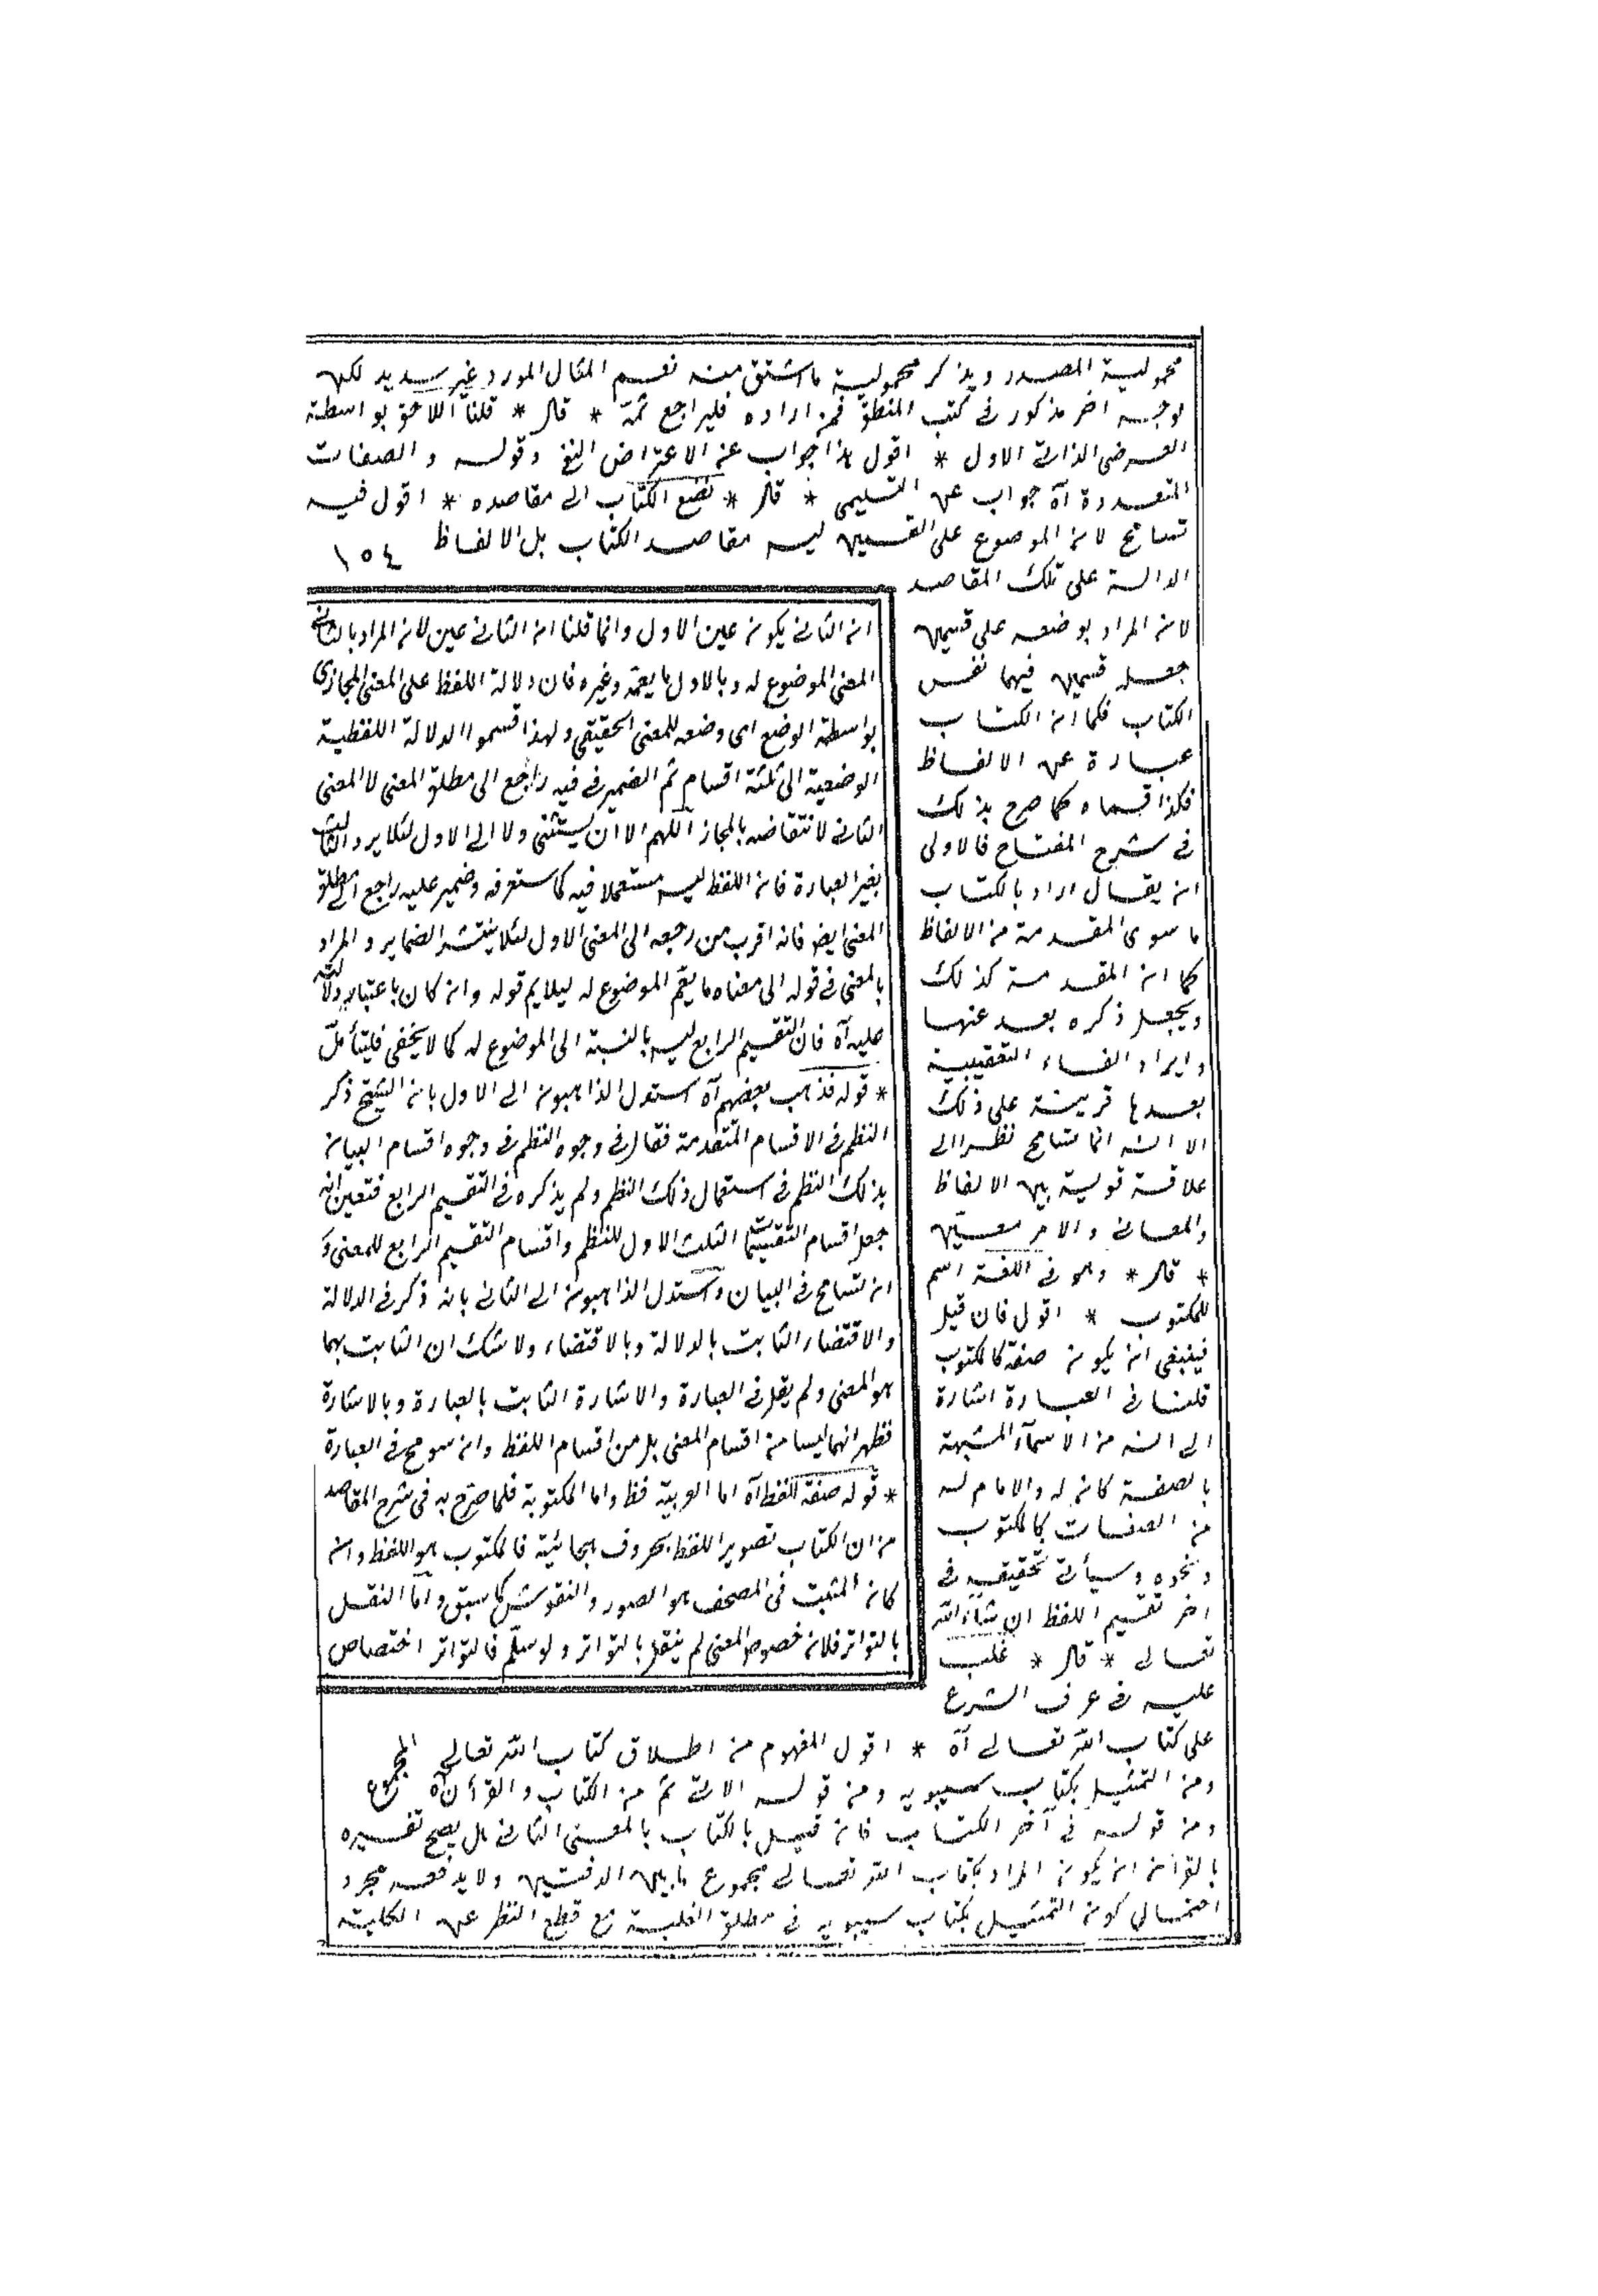 محمولية المصدر ويذكر محمولية ما اشتق منه نعم المثال المورد غير سديد لكن
لوجه اخر مذكور فى كتب المنطق فمن اراده فليراجع ثمة * قال * قلنا اللاحق بواسطة
العرضى الذاتى الاول * اقول هذا جواب عن الاعتراض الخ وقوله والصفات
المتعددة آه جواب عن التسليمى * قال * نضع الكتاب الى مقاصده * اقول فيه
تسامح لان الموضوع على القسمين ليس مقاصد الكتاب بل الالفاظ
١٥٤
الدالة على تلك المقاصد
لان المراد بوضعه على قسمين
جعله قسمين فيهما نفس
الكتاب فكما ان الكتاب
عبارة عن الالفاظ
فكذا قسماه كما صرح بذلك
فى شرح المفتاح فالاولى
ان يقال اراد بالكتاب
ما سوى المقدمة من الالفاظ
كما ان المقدمة كذلك
ويجعل ذكره بعد عنها
وايراد الفاء التعقيبية
بعدها قرينة على ذلك
الا انه انما تسامح نظرا الى
علاقة قوية بين الالفاظ
والمعانى والامر معين
* قال * وهو فى اللغة اسم
للمكتوب * اقول فان قيل
فينبغى ان يكون صفة كالمكتوب
قلنا فى العبارة اشارة
الى انه من الاسماء المشبهة
بالصفة كاله والامام له
من الصفات كالمكتوب
ونحوه وسيأتى تحقيقه فى
اخر تقسيم اللفظ ان شاء الله
تعالى * قال * غلب
عليه فى عرف الشرع
على كتاب الله تعالى آه * اقول المفهوم من اطلاق كتاب الله تعالى المجموع
ومن التمثيل بكتاب سيبويه ومن قوله الاتى ثم من الكتاب والقرأن آه
ومن قوله فى آخر الكتاب فان قيل بالكتاب بالمعنى الثانى هل يصح تفسيره
بالقرأن ان يكون المراد بكتاب الله تعالى مجموع ما بين الدفتين ولا يدفعه مجرد
احتمال كون التمثيل بكتاب سيبويه فى مطلق الغلبة مع قطع النظر عن الكلية
ان الثانى يكون عين الاول وانما قلنا ان الثانى عين لان المراد بالثانى
المعنى الموضوع له وبالاول ما يعمه وغيره فان دلالة اللفظ على المعنى المجازى
بواسطة الوضع اى وضعه للمعنى الحقيقى ولهذا قسموا الدلالة اللفظية
الوضعية الى ثلثة اقسام ثم الضمير فى فيه راجع الى مطلق المعنى لا المعنى
الثانى لانتقاضه بالمجاز اللهم الا ان يستثنى ولا الى الاول لئلا يرد الثابت
بغير العبارة فان اللفظ ليس مستعملا فيه كما ستعرفه وضمير عليه راجع الى مطلق
المعنى ايضا فانه اقرب من رجعه الى المعنى الاول لئلا ينتشر الضماير والمراد
بالمعنى فى قوله الى معناه ما يعم الموضوع له ليلايم قوله وان كان باعتبار دلالته
عليه آه فان التقسيم الرابع ليس بالنسبة الى الموضوع له كما لا يخفى فليتأمل
* قوله فذهب بعضهم آه استدل الذاهبون الى الاول بان الشيخ ذكر
النظم فى الاقسام المتقدمة فقال فى وجوه النظم فى وجوه اقسام البيان
بذلك النظم فى استعمال ذلك النظم ولم يذكره فى التقسيم الرابع فتعين انه
جعل اقسام التقسيمات الثلث الاول للنظم واقسام التقسيم الرابع للمعنى و
ان تسامح فى البيان واستدل الذاهبون الى الثانى بانه ذكر فى الدلالة
والاقتضاء الثابت بالدلالة وبالاقتضاء ولا شك ان الثابت بهما
هو المعنى ولم يقل فى العبارة والاشارة الثابت بالعبارة وبالاشارة
فظهر انهما ليسا من اقسام المعنى بل من اقسام اللفظ وان سومح فى العبارة
* قوله صفة للفظ آه اما العربية فظ واما المكتوبة فلما صرح به فى شرح المقاصد
من ان الكتاب تصوير اللفظ بحروف هجائية فالمكتوب هو اللفظ وان
كان المثبت فى المصحف هو الصور والنقوش كما سبق واما النقل
بالتواتر فلان خصوص المعنى لم ينقل بالتواتر ولو سلم فالتواتر اختصاص